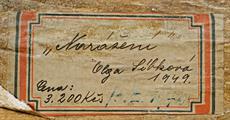 „Narášení"
Olga Síbková
1949.
Cena:
3.200Kčs